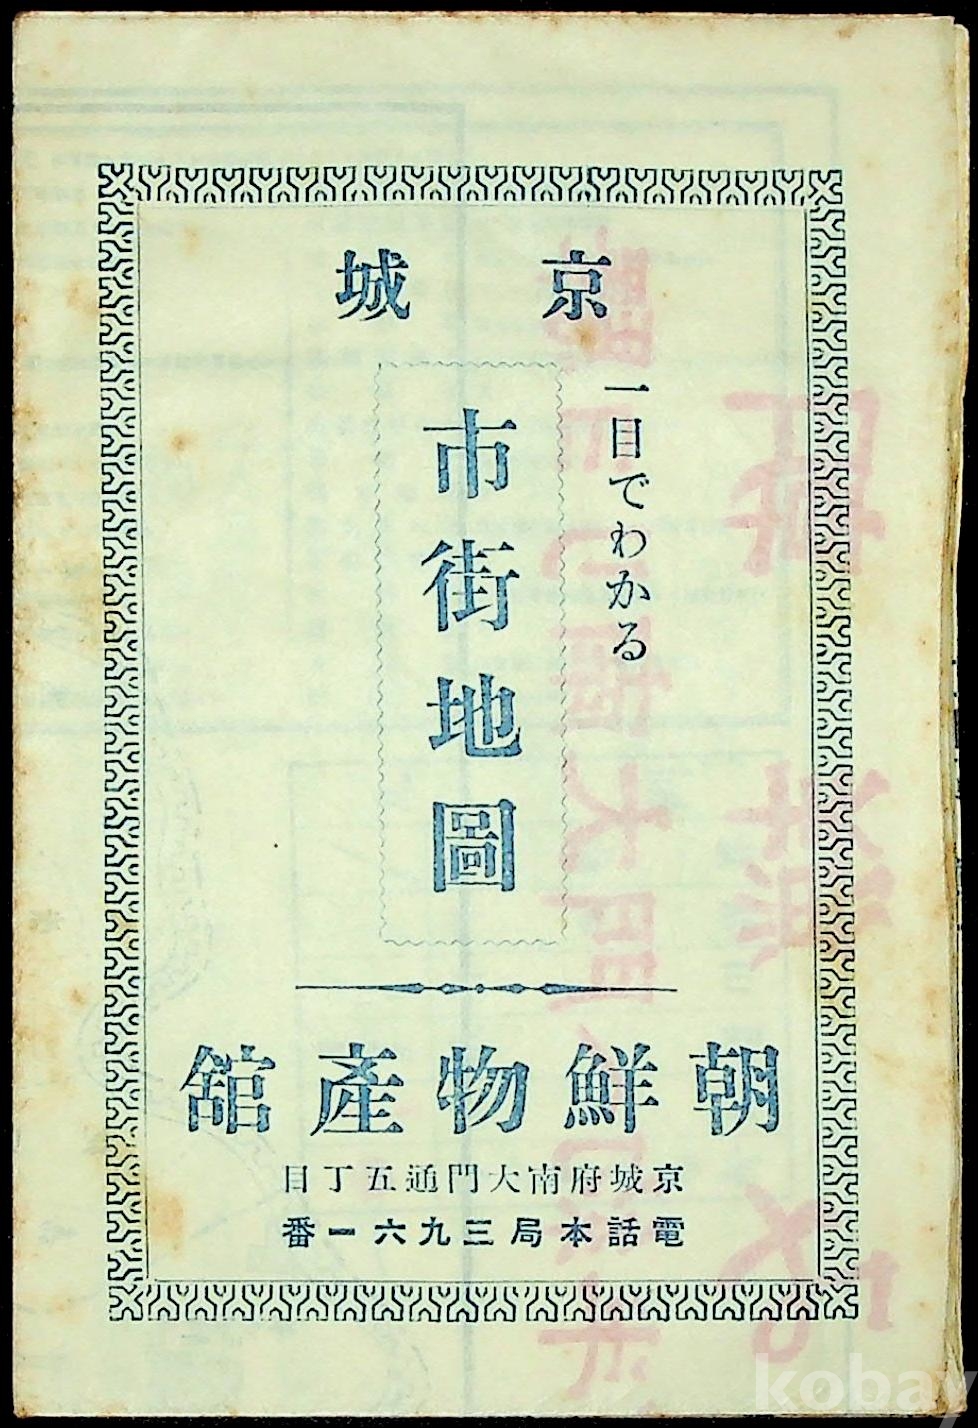 京城
一目でわかる
市街地圖
朝鮮物產舘
京城府南大門通五丁目
電話本局三九六一番
kobay